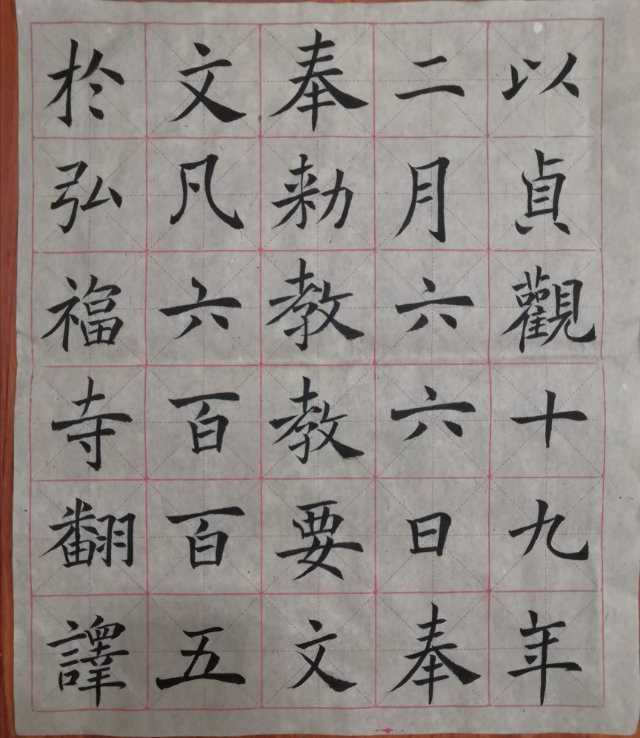 以貞觀十九年
二月六六日奉
奉勑教教要文
文凡六百百五
於弘福寺翻譯